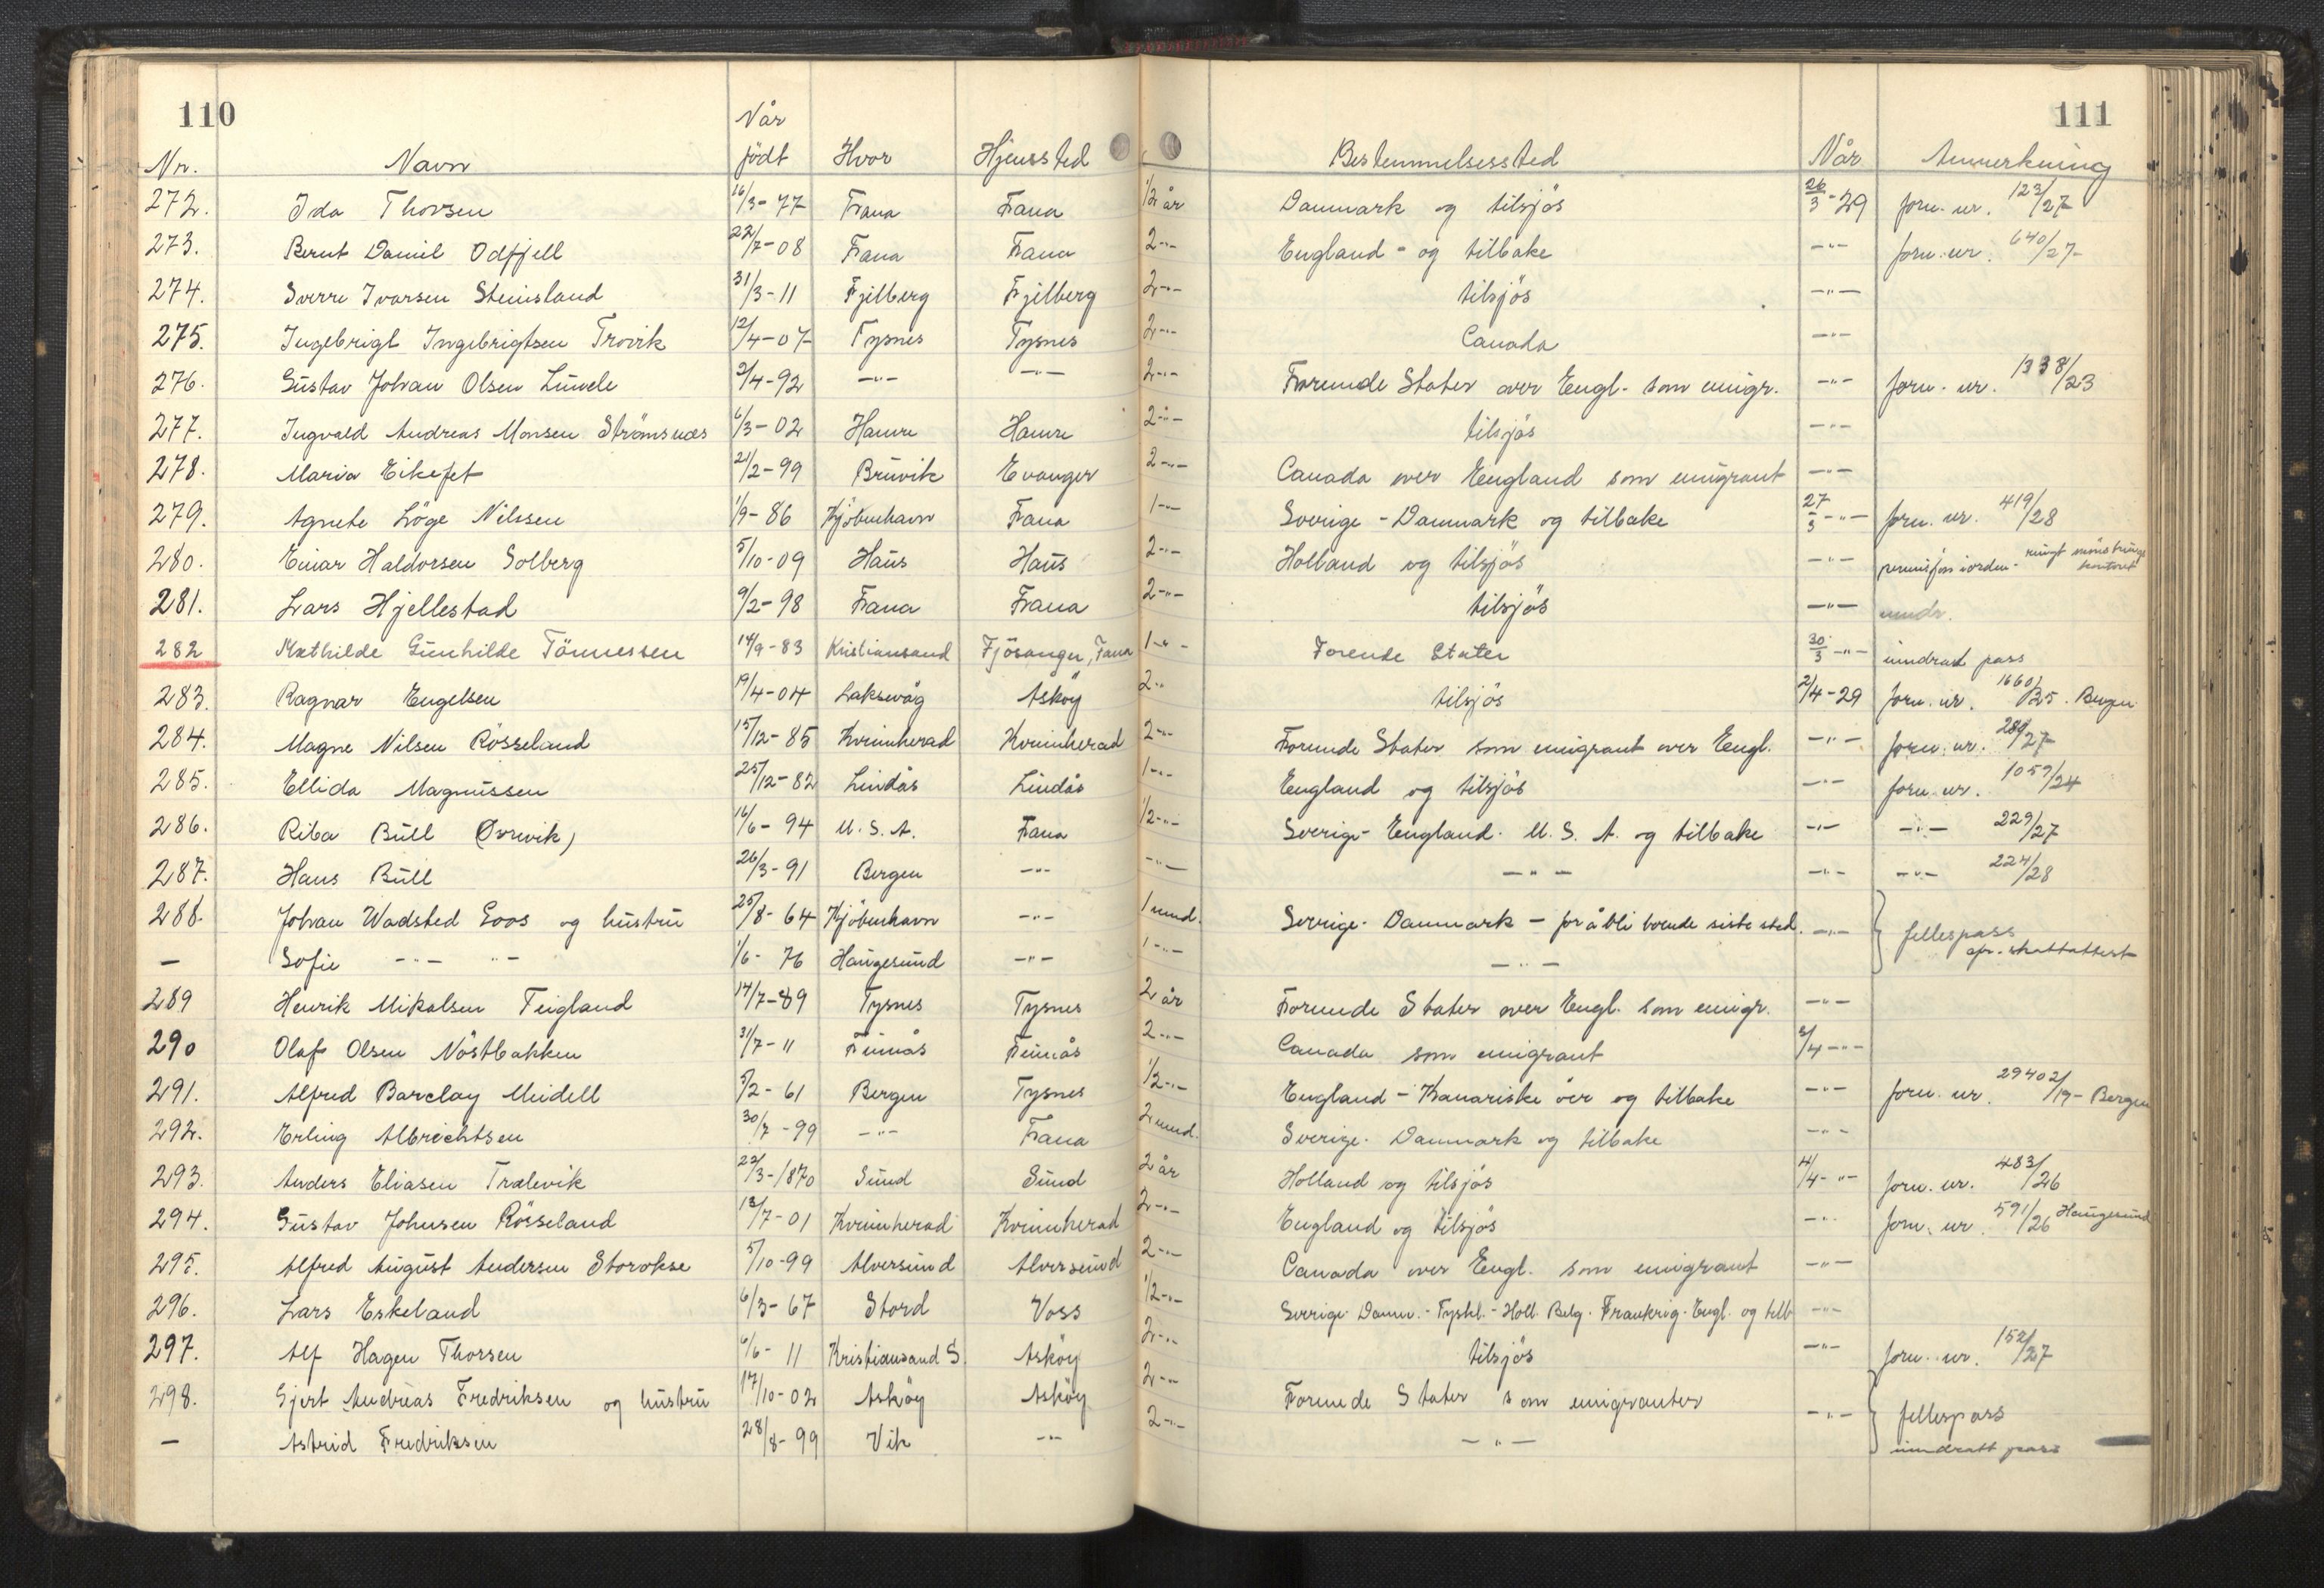 110
111
Når
Nr. Navn født Hvor Hjemsted Bestemmelsessted Når Anmerkning
272. Ida Thorsen 16/3-77 Fana Fana 1/2 år Danmark og tilsjøs 26/3-29 forn. nr. 123/27
273. Bernt Daniel Odfjell 22/7-08 Fana Fana 2-"- England - og tilbake -"- forn. nr. 640/27
274. Sverre Ivarsen Steinsland 31/3-11 Fjelberg Fjelberg 2-"- tilsjøs -"-
275. Ingebrigt Ingebrigtsen Trovik 12/4-07 Tysnes Tysnes 2-"- Canada -"-
276. Gustav Johan Olsen Lunde 2/4-92 -"- -"- 2-"- Forenede Stater over Engl. som emigr. -"- forn. nr. 1338/23
277. Ingvald Andreas Monsen Strömsnes 6/3-02 Hamre Hamre 2-"- tilsjøs -"-
278. Maria Eikefet 21/2-99 Bruvik Evanger 2-"- Canada over England som emigrant -"-
279. Agnete Löge Nilssen 1/9-86 Kjöbenhavn Fana 1-"- Sverige - Danmark og tilbake 27/3-"- forn. nr. 419/28
280. Einar Haldorsen Solberg 5/10-09 Haus Haus 2-"- Holland og tilsjøs -"- permisjon iorden - ringt mönstrings kontoret
281. Lars Hjellestad 9/2-98 Fana Fana 2-"- tilsjøs -"- inndr.
282 Mathilde Gunhilde Tönnessen 14/9-83 Kristiansand Fjösanger, Fana 1-"- Forende Stater 30/3-"- inndradt pass
283. Ragnar Engelsen 19/4-04 Laksevåg Askøy 2-"- tilsjøs 2/4-29 forn. nr. 1660/25. Bergen
284. Magne Nilsen Rösseland 15/12-85 Kvinnherad Kvinnherad 2-"- Forenede Stater som emigrant over Engl. -"- forn. nr. 289/27
285. Ellida Magnussen 25/12-82 Lindås Lindås 1-"- England og tilsjøs -"- forn. nr. 1059/24
286. Rita Bull (Ørevik) 16/6-94 U.S.A. Fana 1/2-"- Sverige - England. U.S.A. og tilbake -"- -"- 229/27
287. Hans Bull 26/3-91 Bergen -"- -"- -"- -"- -"- 224/28
288. Johan Wadsted Goos og hustru 25/8-64 Kjöbenhavn -"- 1 mnd. Sverige - Danmark - for å bli boende siste sted. -"- fellespass
— Sofie -"- "- 1/6-76 Haugesund -"- 1-"- -"- afr. skattattest
289 Henrik Mikalsen Teigland 14/7-89 Tysnes Tysnes 2 år Forenede Stater over Engl. som emigr. -"-
290 Olaf Olsen Nöstbakken 31/7-11 Finnås Finnås 2-"- Canada som emigrant 3/4-"-
291. Alfred Barclay Meidell 5/2-61 Bergen Tysnes 1/2-"- England - Kanariske öer og tilbake -"- forn. nr. 29402/19 - Bergen
292. Erling Albrechtsen 30/7-99 -"- Fana 2 mnd. Sverige - Danmark og tilbake -"-
293. Anders Eliasen Trælevik 22/3-1870 Sund Sund 2 år Holland og tilsjøs 4/4-"- forn. nr. 483/26
294. Gustav Johnsen Rösseland 13/7-01 Kvinnherad Kvinnherad 2-"- England og tilsjøs -"- forn. nr. 591/26 Haugesund
295. Alfred August Andersen Storokse 5/10-99 Alversund Alversund 2-"- Canada over Engl. som emigrant -"-
296. Lars Eskeland 6/3-67 Stord Voss 1/2-"- Sverige - Danm. - Tyskl. - Holl. Belg. Frankrig - Engl. og tilb -"-
297. Alf Hagen Thorsen 6/6-11 Kristiansand S. Askøy 2-"- tilsjøs -"- forn. nr. 152/27
298. Gjert Andreas Fredriksen og hustru 17/10-02 Askøy Askøy 2-"- Forenede Stater som emigranter -"- fellespass
— Astrid Fredriksen 28/8-99 Vik -"- 2-"- -"- inndratt pass